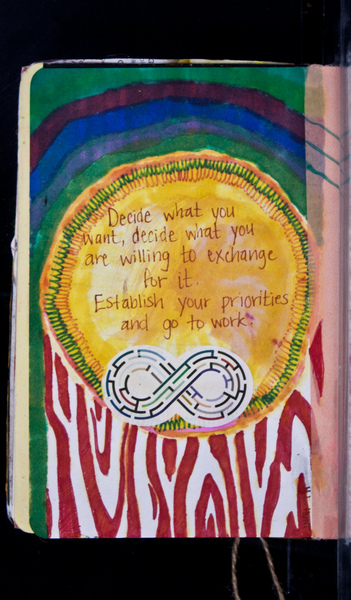 Decide what you
want, decide what you
are willing to exchange
for it.
Establish your priorities
and go to work.